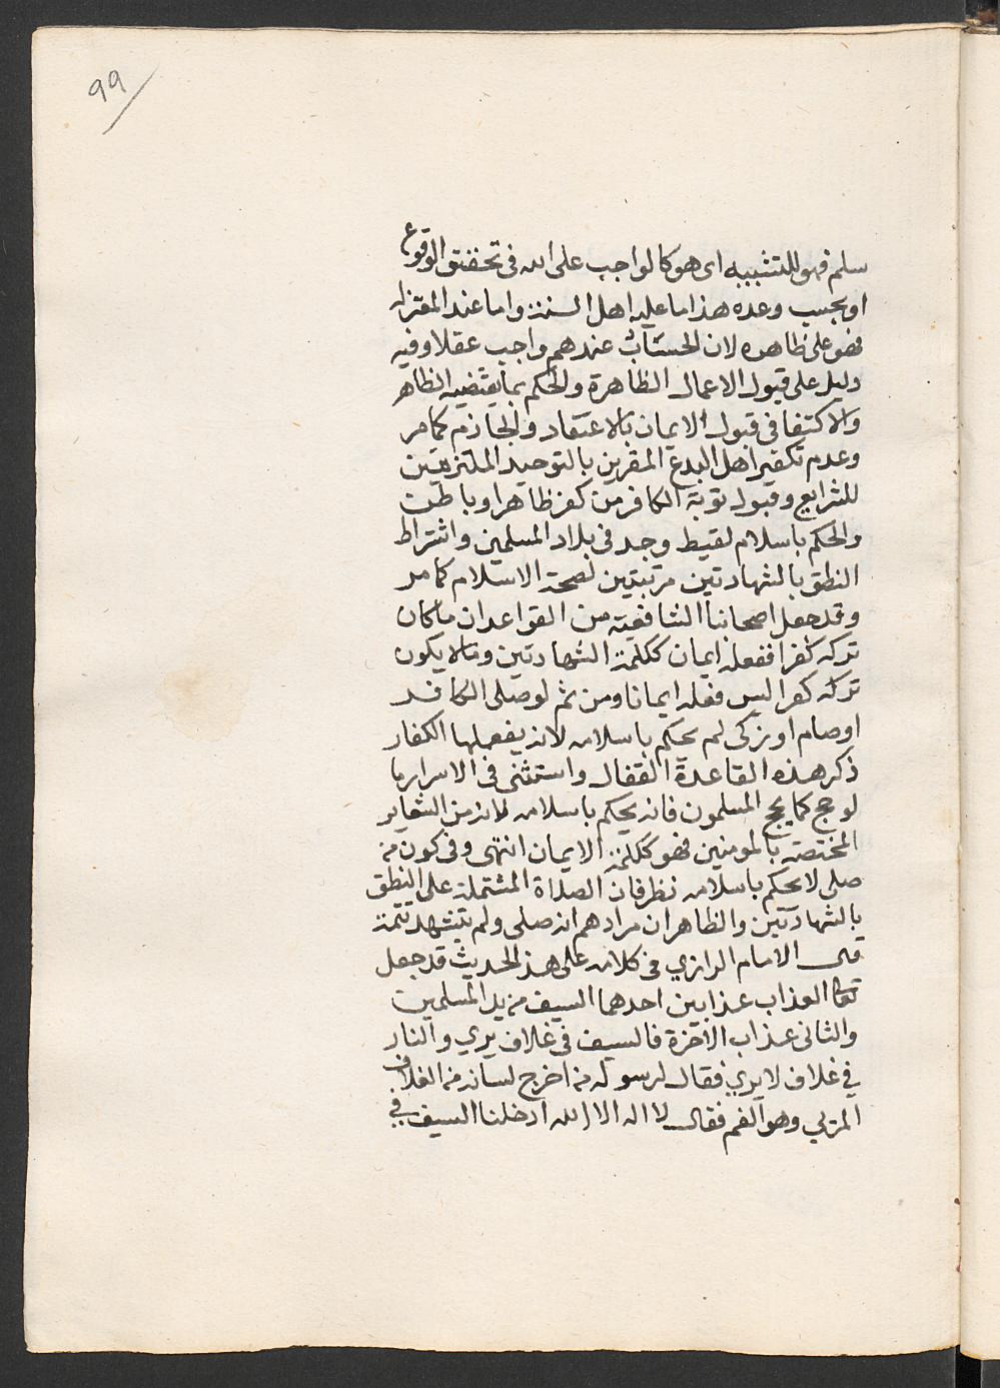 99
سلم فهو للتشبيه اى هو كالواجب على الله فى تحقق الوقوع
او بحسب وعده هذا ما عليه اهل السنة واما عند المعتزلة
فهو على ظاهره لان الحساب عندهم واجب عقلا وفيه
دليل على قبول الاعمال الظاهرة والحكم بما يقتضيه الظاهر
والاكتفا فى قبول الايمان بالاعتقاد والجازم كما مر
وعدم تكفير اهل البدع المقرين بالتوحيد الملتزمين
للشرايع وقبول توبة الكافر من كفر ظاهر او باطن
والحكم باسلام لقيط وجد فى بلاد المسلمين واشتراط
النطق بالشهادتين مرتبتين لصحة الاسلام كما مر
وقد جعل اصحابنا الشافعية من القواعد ان ما كان
تركه كفرا ففعله ايمان ككلمة الشهادتين وما لا يكون
تركه كفرا ليس فعله ايمانا ومن ثم لو صلى الكافر
او صام او زكى لم يحكم باسلامه لانه يفعلها الكفار
ذكر هذه القاعدة القفال واستثنى فى الاسرار ما
لو حج كما يحج المسلمون فانه يحكم باسلامه لانه من الشعاير
المختصة بالمومنين فهو ككلمة الايمان انتهى وفى كون من
صلى لا يحكم باسلامه نظر فان الصلاة المشتملة على النطق
بالشهادتين والظاهر ان مرادهم انه صلى ولم يتشهد تتمة
قال الامام الرازي فى كلامه على هذا الحديث قد جعل
تعالى العذاب عذابين احدهما السيف من يد المسلمين
والثانى عذاب الآخرة فالسيف فى غلاف يري والنار
في غلاف لا يري فقال لرسوله من اخرج لسانه من الغلاف
المرئي وهو الفم فقال لا اله الا الله ادخلنا السيف في